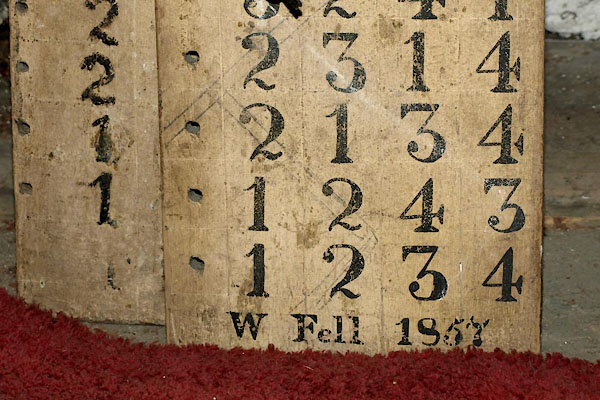 2
2
1
1
1
3 2 4 1
2 3 1 4
2 1 3 4
1 2 4 3
1 2 3 4
W Fell 1857